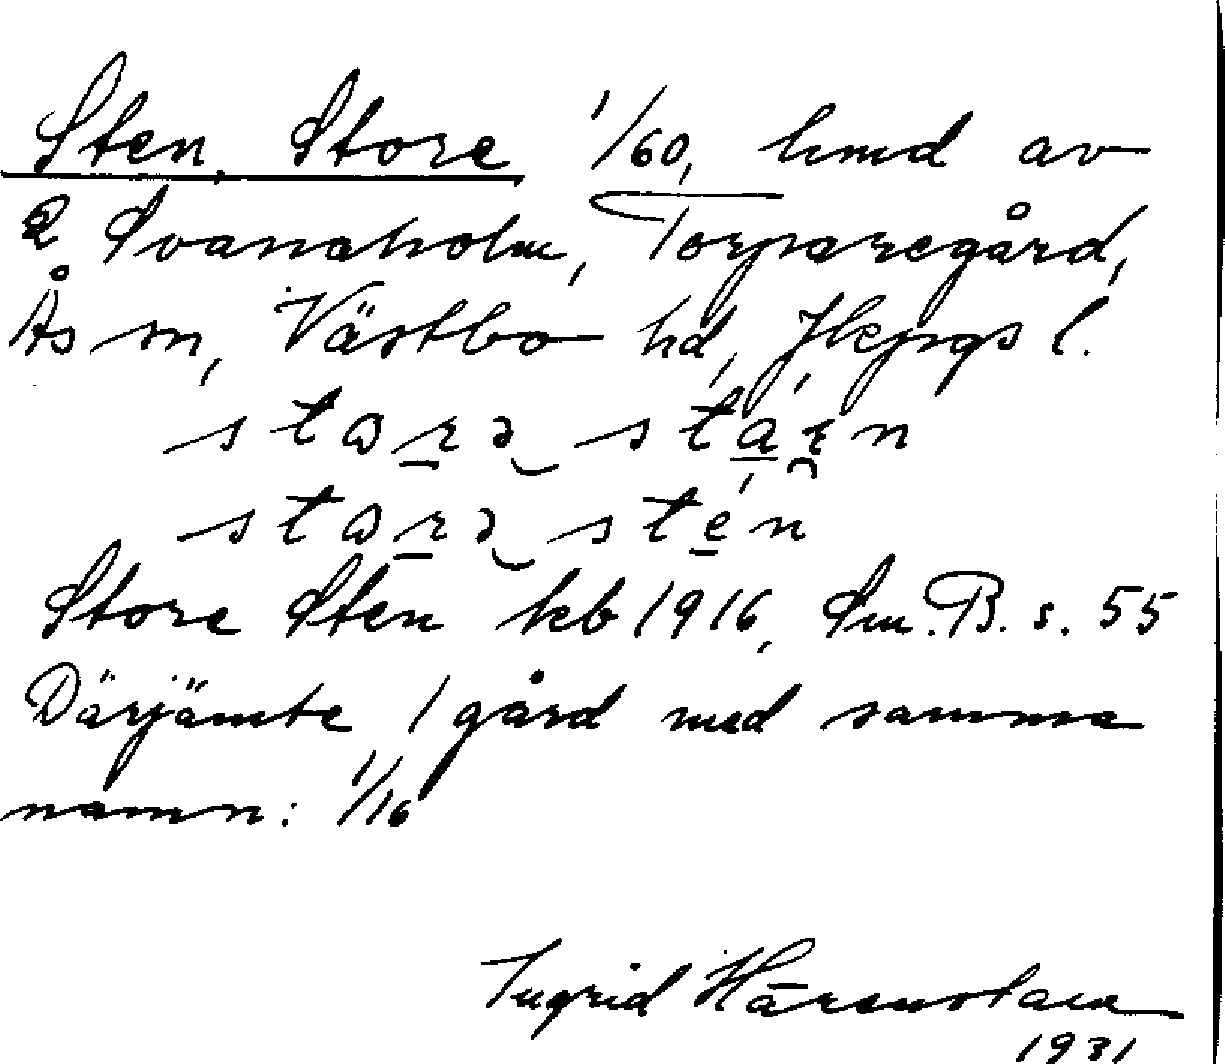 Sten, Store 1/60, hmd av
2 Svanaholm, Torparegård,
Ås sn, Västbo hd, Jkpgs l.
Store Sten kb 1916, Sm. B. s. 55
Därjämte 1 gård med samma
namn: 1/16
Ingrid
1931